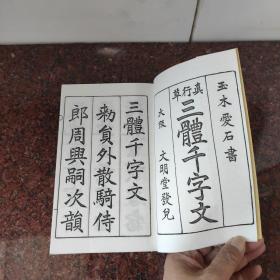 玉木愛石書
真行草
三體千字文
大阪 文明堂發兌
三體千字文
勑貟外散騎侍
郎周興嗣次韻